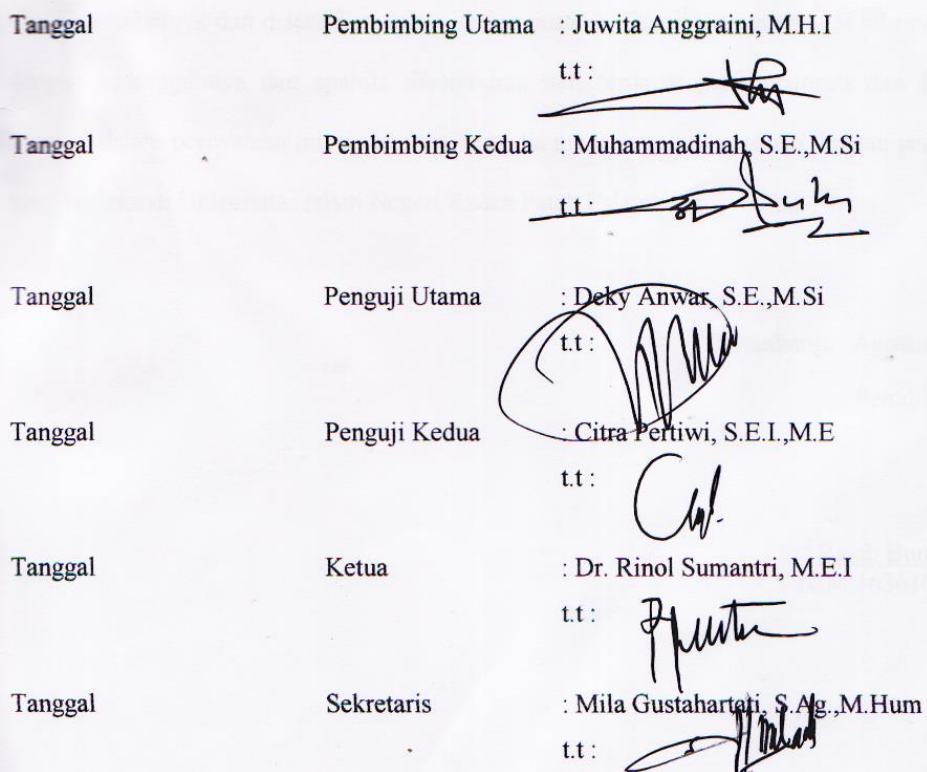 Tanggal Pembimbing Utama : Juwita Anggraini, M.H.I
t.t :
Tanggal Pembimbing Kedua : Muhammadinah, S.E.,M.Si
t.t :
Tanggal Penguji Utama : Deky Anwar, S.E.,M.Si
t.t :
Tanggal Penguji Kedua : Citra Pertiwi, S.E.I.,M.E
t.t :
Tanggal Ketua : Dr. Rinol Sumantri, M.E.I
t.t :
Tanggal Sekretaris : Mila Gustahartati, S.Ag.,M.Hum
t.t :